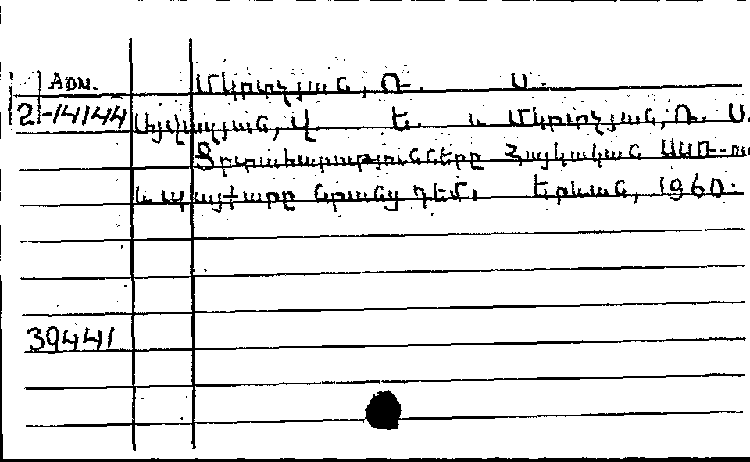 ADN. Մկրտչյան, Ռ. Ս.
2-14144 Այվազյան, Վ. Ե. և Մկրտչյան, Ռ. Ս.
Ցրտահարությունները Հայկական ՍՍՌ-ում
և պայքարը նրանց դեմ. Երևան, 1960.
39441